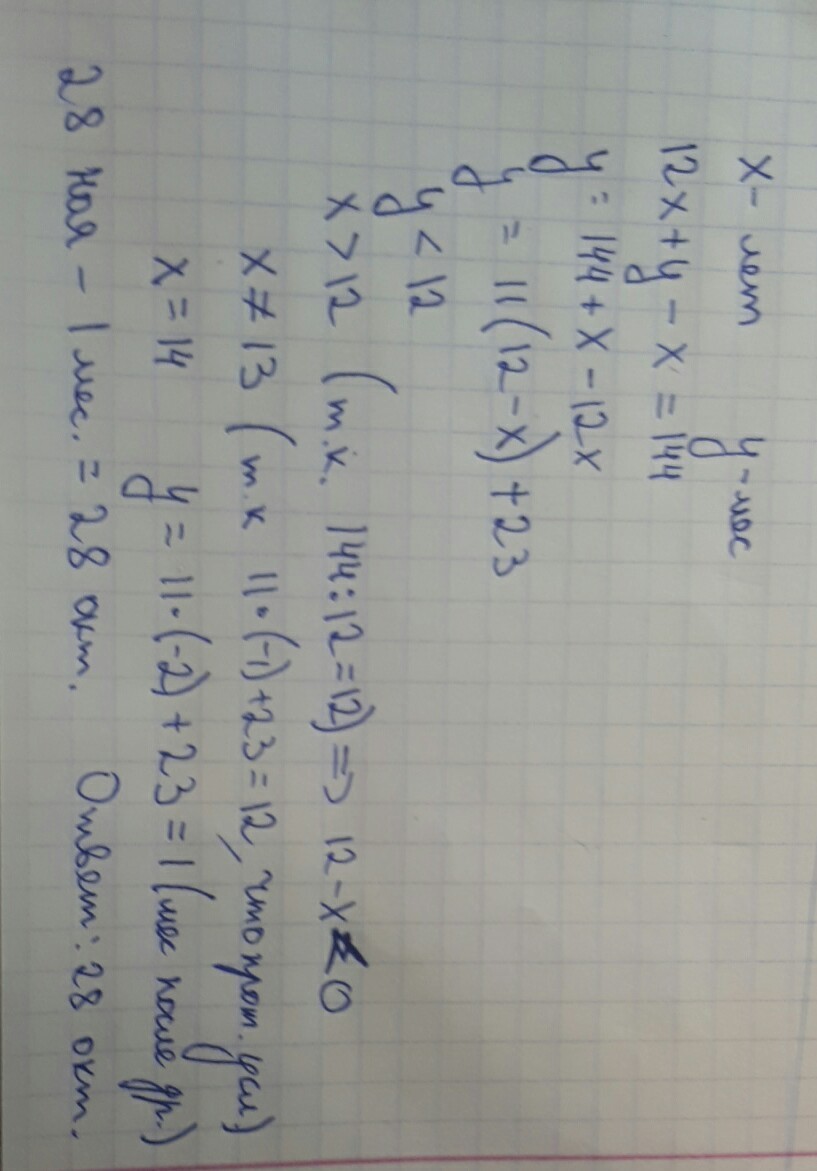 x - лет y - мес
12x + y - x = 144
y = 144 + x - 12x
y = 11(12 - x) + 23
y < 12
x > 12 (т.к. 144:12=12) => 12 - x < 0
x ≠ 13 (т.к 11•(-1)+23=12, что прот. усл)
x = 14 y = 11•(-2)+23 = 1 (мес после др.)
28 ноя - 1 мес. = 28 окт. Ответ: 28 окт.